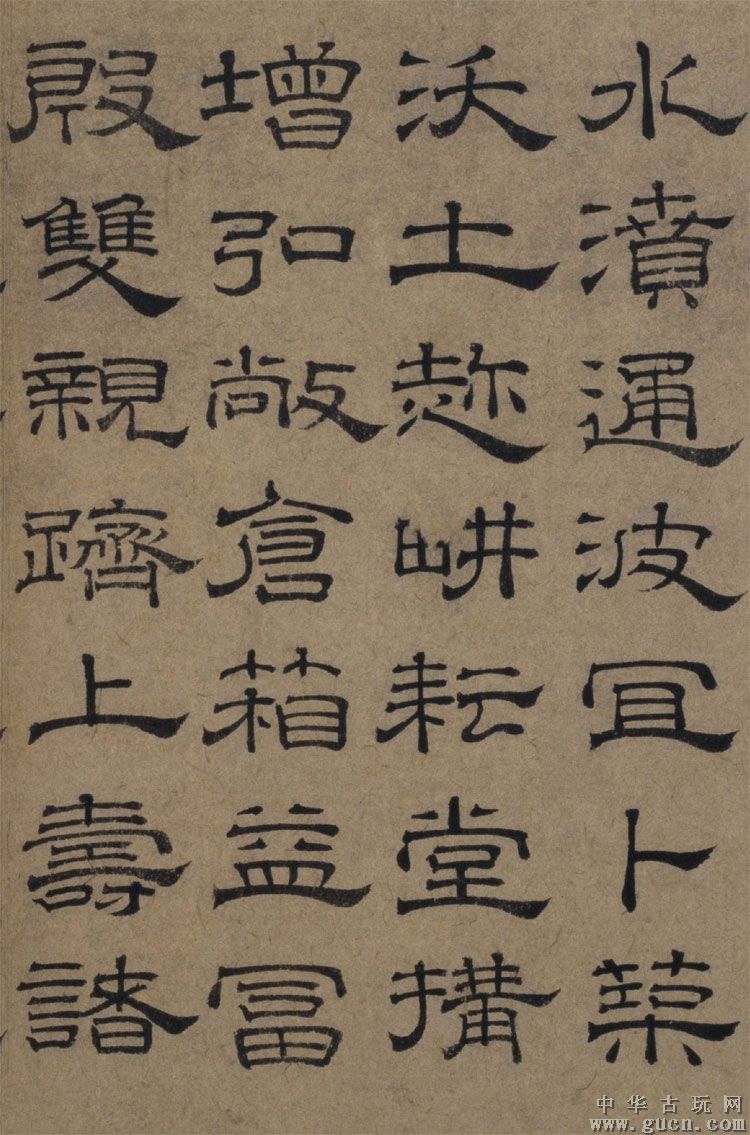 水濆通波冝卜築
沃土趂畊耘堂搆
增弘敞倉箱益冨
殷雙親躋上壽諸
中华古玩网
www.gucn.com